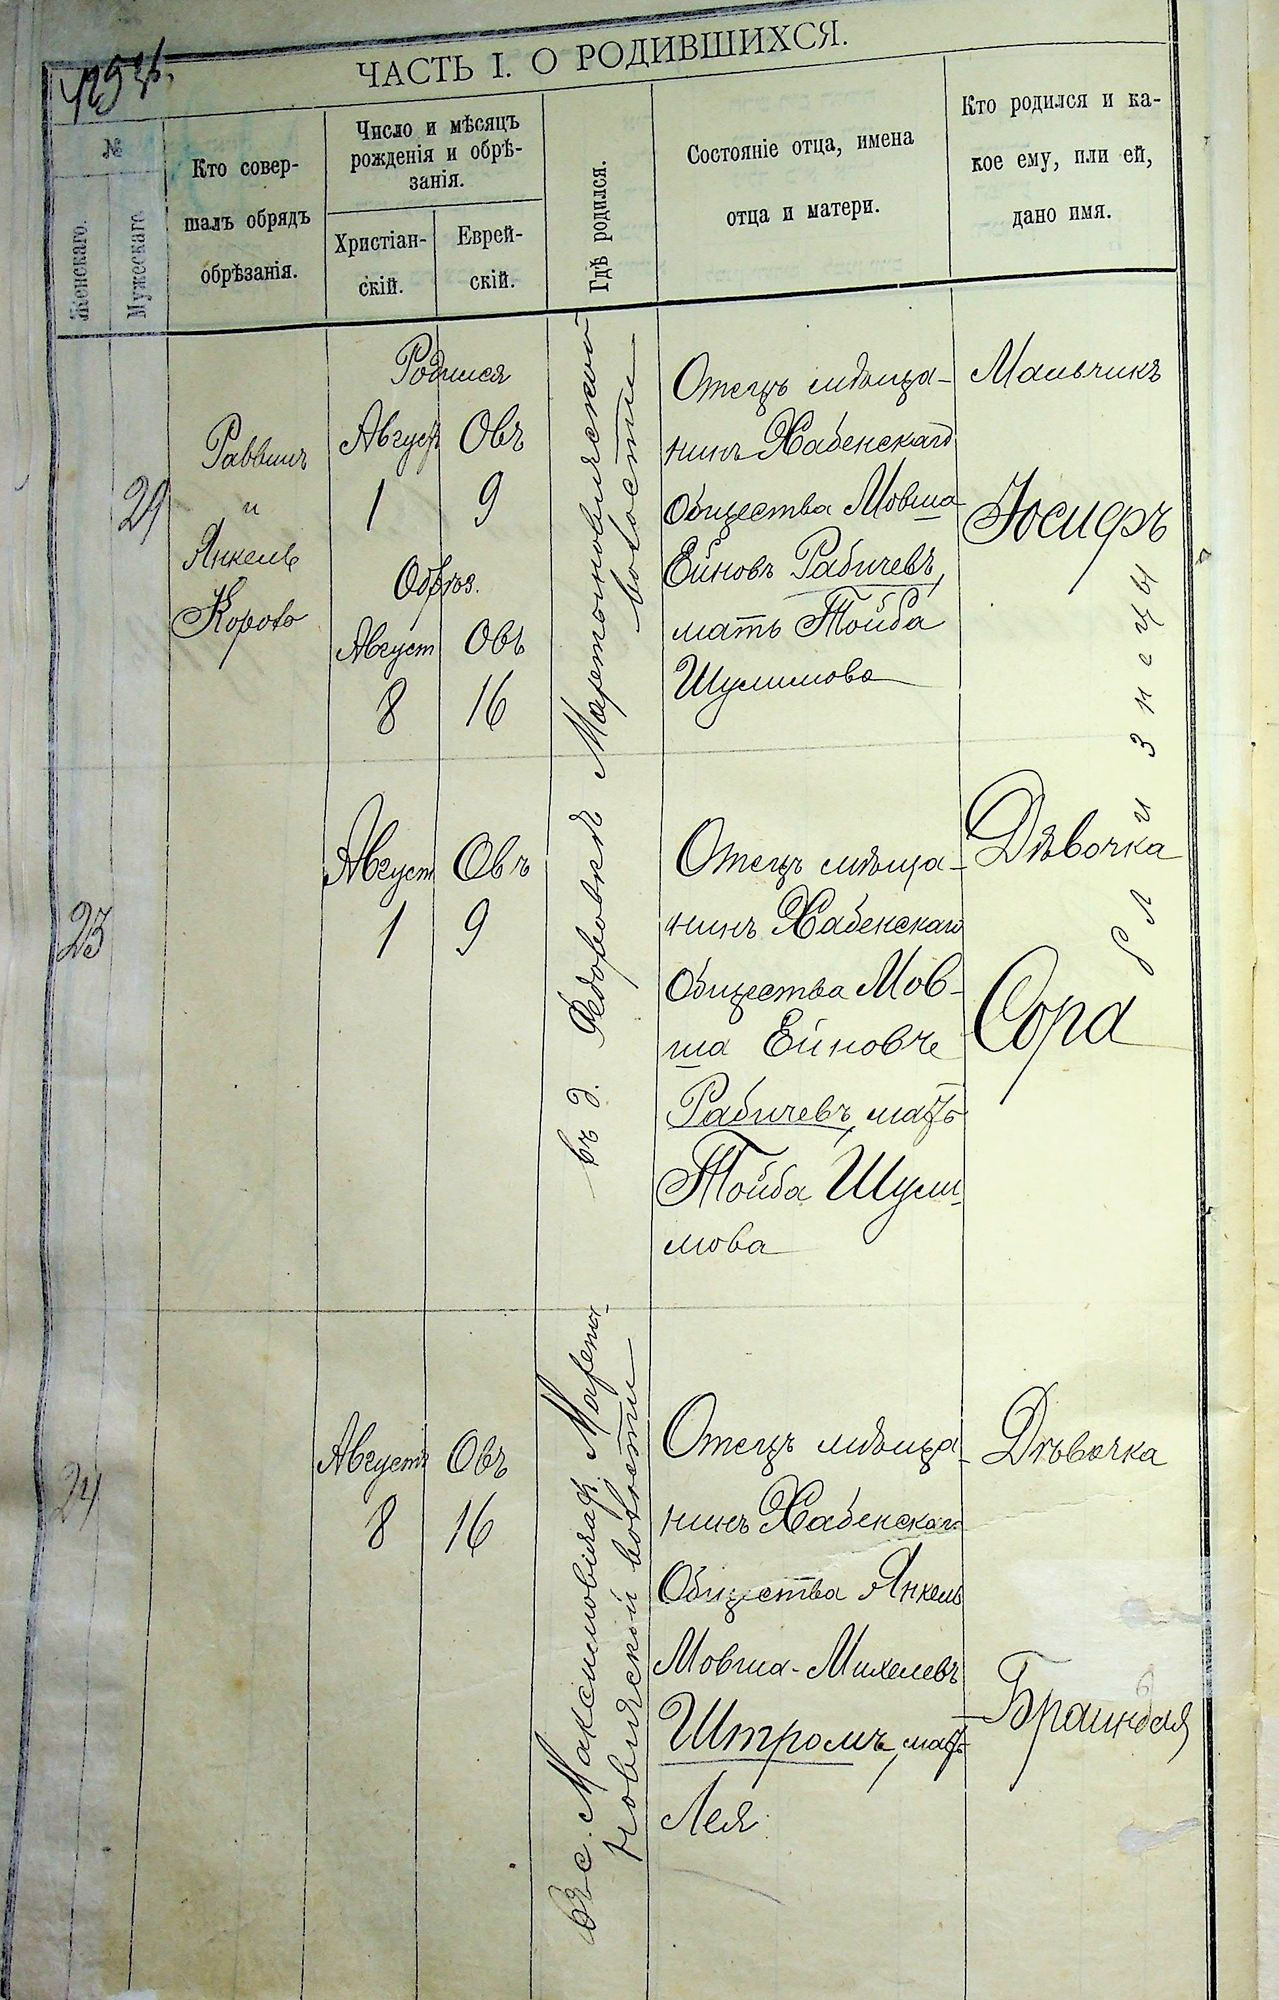 ЧАСТЬ I. О РОДИВШИХСЯ.
№
Женскаго.
Мужескаго
Кто совер-
шалъ обрядъ
обрѣзанія.
Число и мѣсяцъ
рожденія и обрѣ-
занія.
Христіан-
скій.
Еврей-
скій.
Гдѣ родился.
Состояніе отца, имена
отца и матери.
Кто родился и ка-
кое ему, или ей,
дано имя.
29
Раввинъ
и
Янкель
Корото
Родился
Август Овъ
1 9
Обрѣз.
Август Овъ
8 16
въ д. Федоровкѣ Мартыновической
волости
Отецъ мѣща-
нинъ Хабенскаго
Общества Мовша
Ейновъ Рабичевъ,
мать Тойба
Шулимова
Мальчикъ
Іосифъ
близнецы
23
Август Овъ
1 9
Отецъ мѣща-
нинъ Хабенскаго
Общества Мов-
ша Ейновъ
Рабичевъ, мать
Тойба Шули-
мова
Дѣвочка
Сора
24
Августъ Овъ
8 16
въ с. Максимовичах Марты-
новической волости
Отецъ мѣща-
нинъ Хабенскаго
Общества Янкель
Мовша-Михелевъ
Штромъ, мать
Лея
Дѣвочка
Браиндля